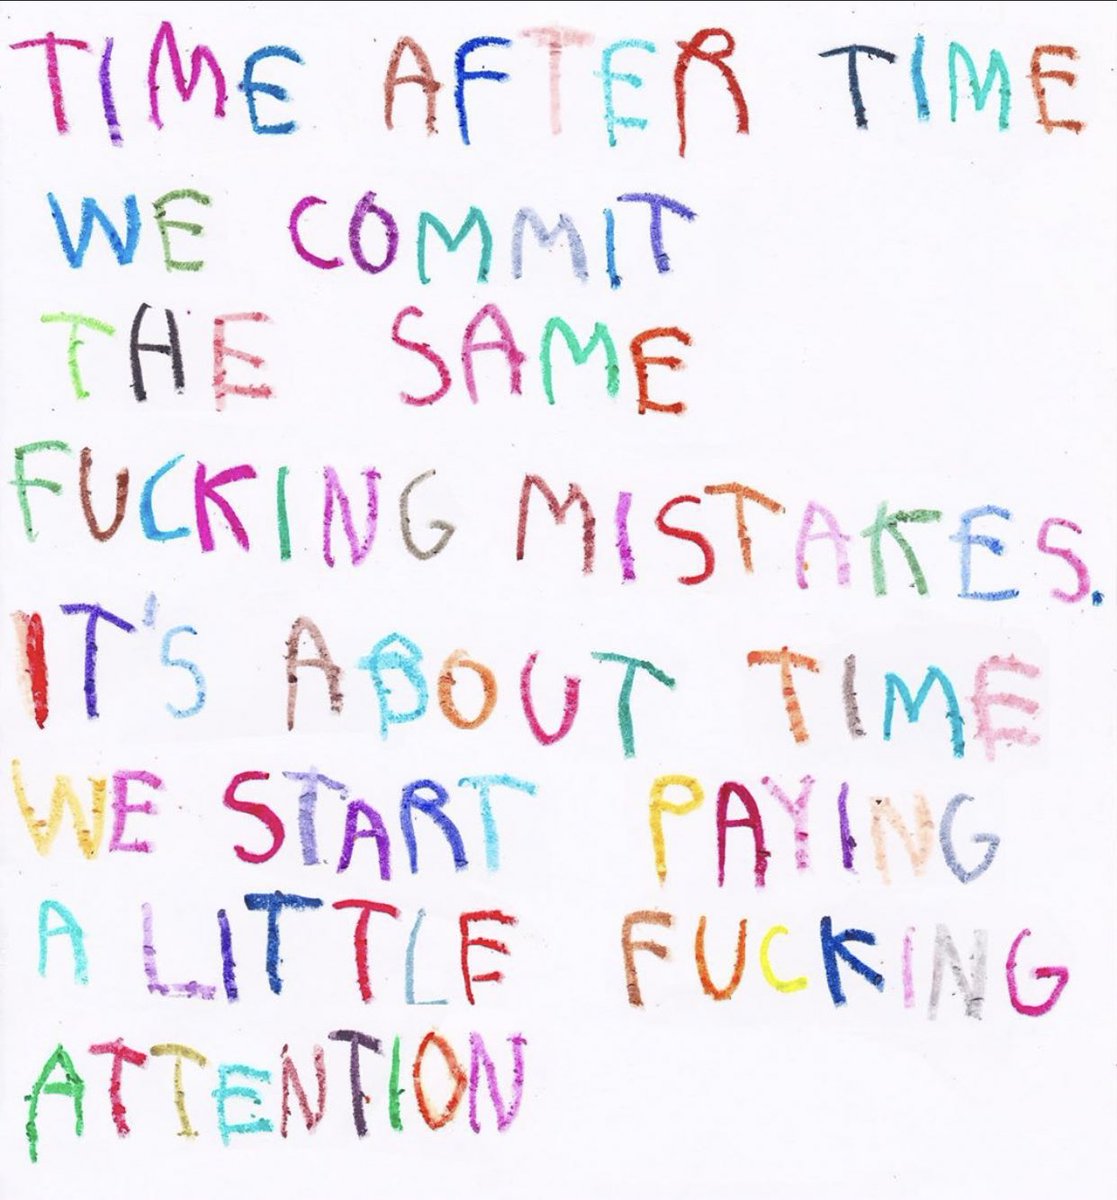 TIME AFTER TIME
WE COMMIT
THE SAME
FUCKING MISTAKES.
IT'S ABOUT TIME
WE START PAYING
A LITTLE FUCKING
ATTENTION